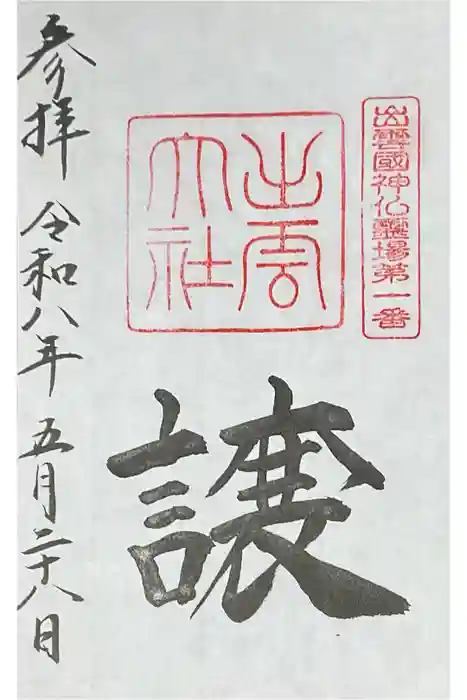 出雲國神仏霊場第一番
出雲
大社
譲
参拝 令和八年 五月二十八日